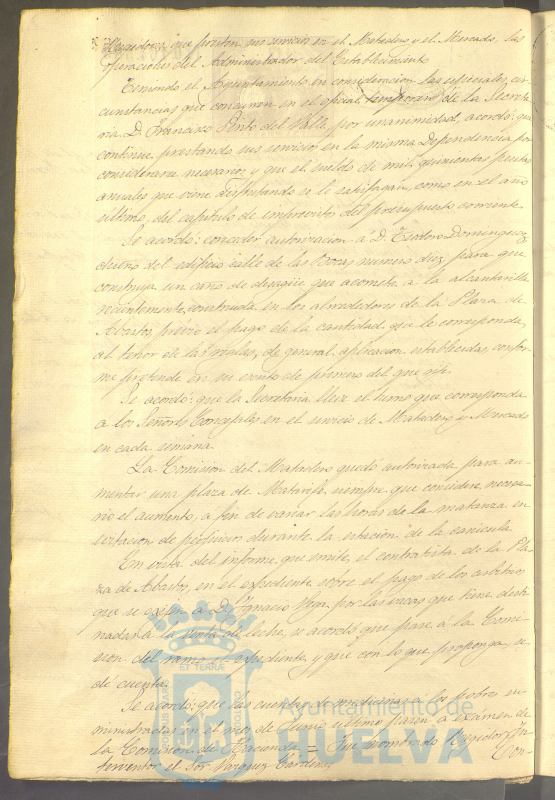 Regidores que prestan sus servicios en el Matadero y el Mercado, las
operaciones del Administrador del Establecimiento.
Teniendo el Ayuntamiento en consideracion las especiales cir-
cunstancias que concurren en el oficial temporero de la Secreta
ria D. Francisco Pinto del Valle, por unanimidad, acordó: que
continue prestando sus servicios en la misma Dependencia por
considerarse necesarios y que el sueldo de mil quinientas pesetas
anuales que viene disfrutando se le satisfaga, como en el año
ultimo, del capitulo de imprevistos del presupuesto corriente.
Se acordó: conceder autorizacion á D. Teodoro Dominguez,
dueño del edificio calle de las Bocas numero diez, para que
construya un caño de desagüe que acometa á la alcantarilla
recientemente construida en los alrededores de la Plaza de
Abastos, previo el pago de la cantidad que le corresponda,
al tenor de las reglas, de general aplicacion establecidas, confor
me pretende en su escrito de primero del que rije.
Se acordó: que la Secretaria lleve el turno que corresponda
a los Señores Concejales en el servicio de Matadero y Mercado
en cada semana.
La Comision del Matadero quedó autorizada para au-
mentar una plaza de Matarife, siempre que considere necesa-
rio el aumento, a fin de variar las horas de la matanza en
evitacion de perjuicios durante la estacion de la canicula.
En vista del informe, que emite, el contratista de la Pla-
za de Abastos, en el expediente sobre el pago de los arbitrios
que se exijen a D. Ignacio por las vacas que tiene desti
nadas a la venta de leche, se acordó que pase á la Comi-
sion del ramo el expediente, y que con lo que proponga, se
dé cuenta.
Se acordó: que las cuentas de medicinas a los pobres su-
ministradas en el mes de Junio ultimo pasen á exámen de
la Comision de Hacienda = Fue nombrado Regidor In-
terventor el Sor Vazquez Cardenas
Con-
ET TERRAE
Ayuntamiento de
HUELVA